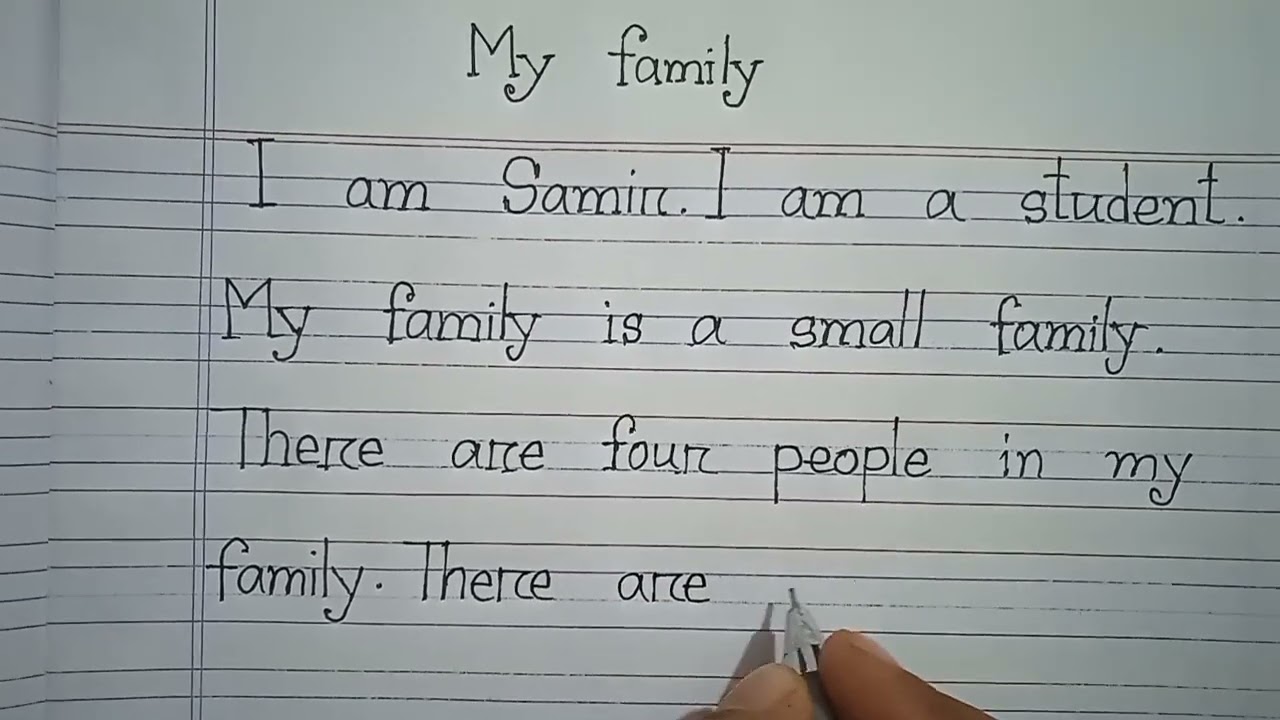 My family
I am Samir. I am a student.
My family is a small family.
There are four people in my
family. There are